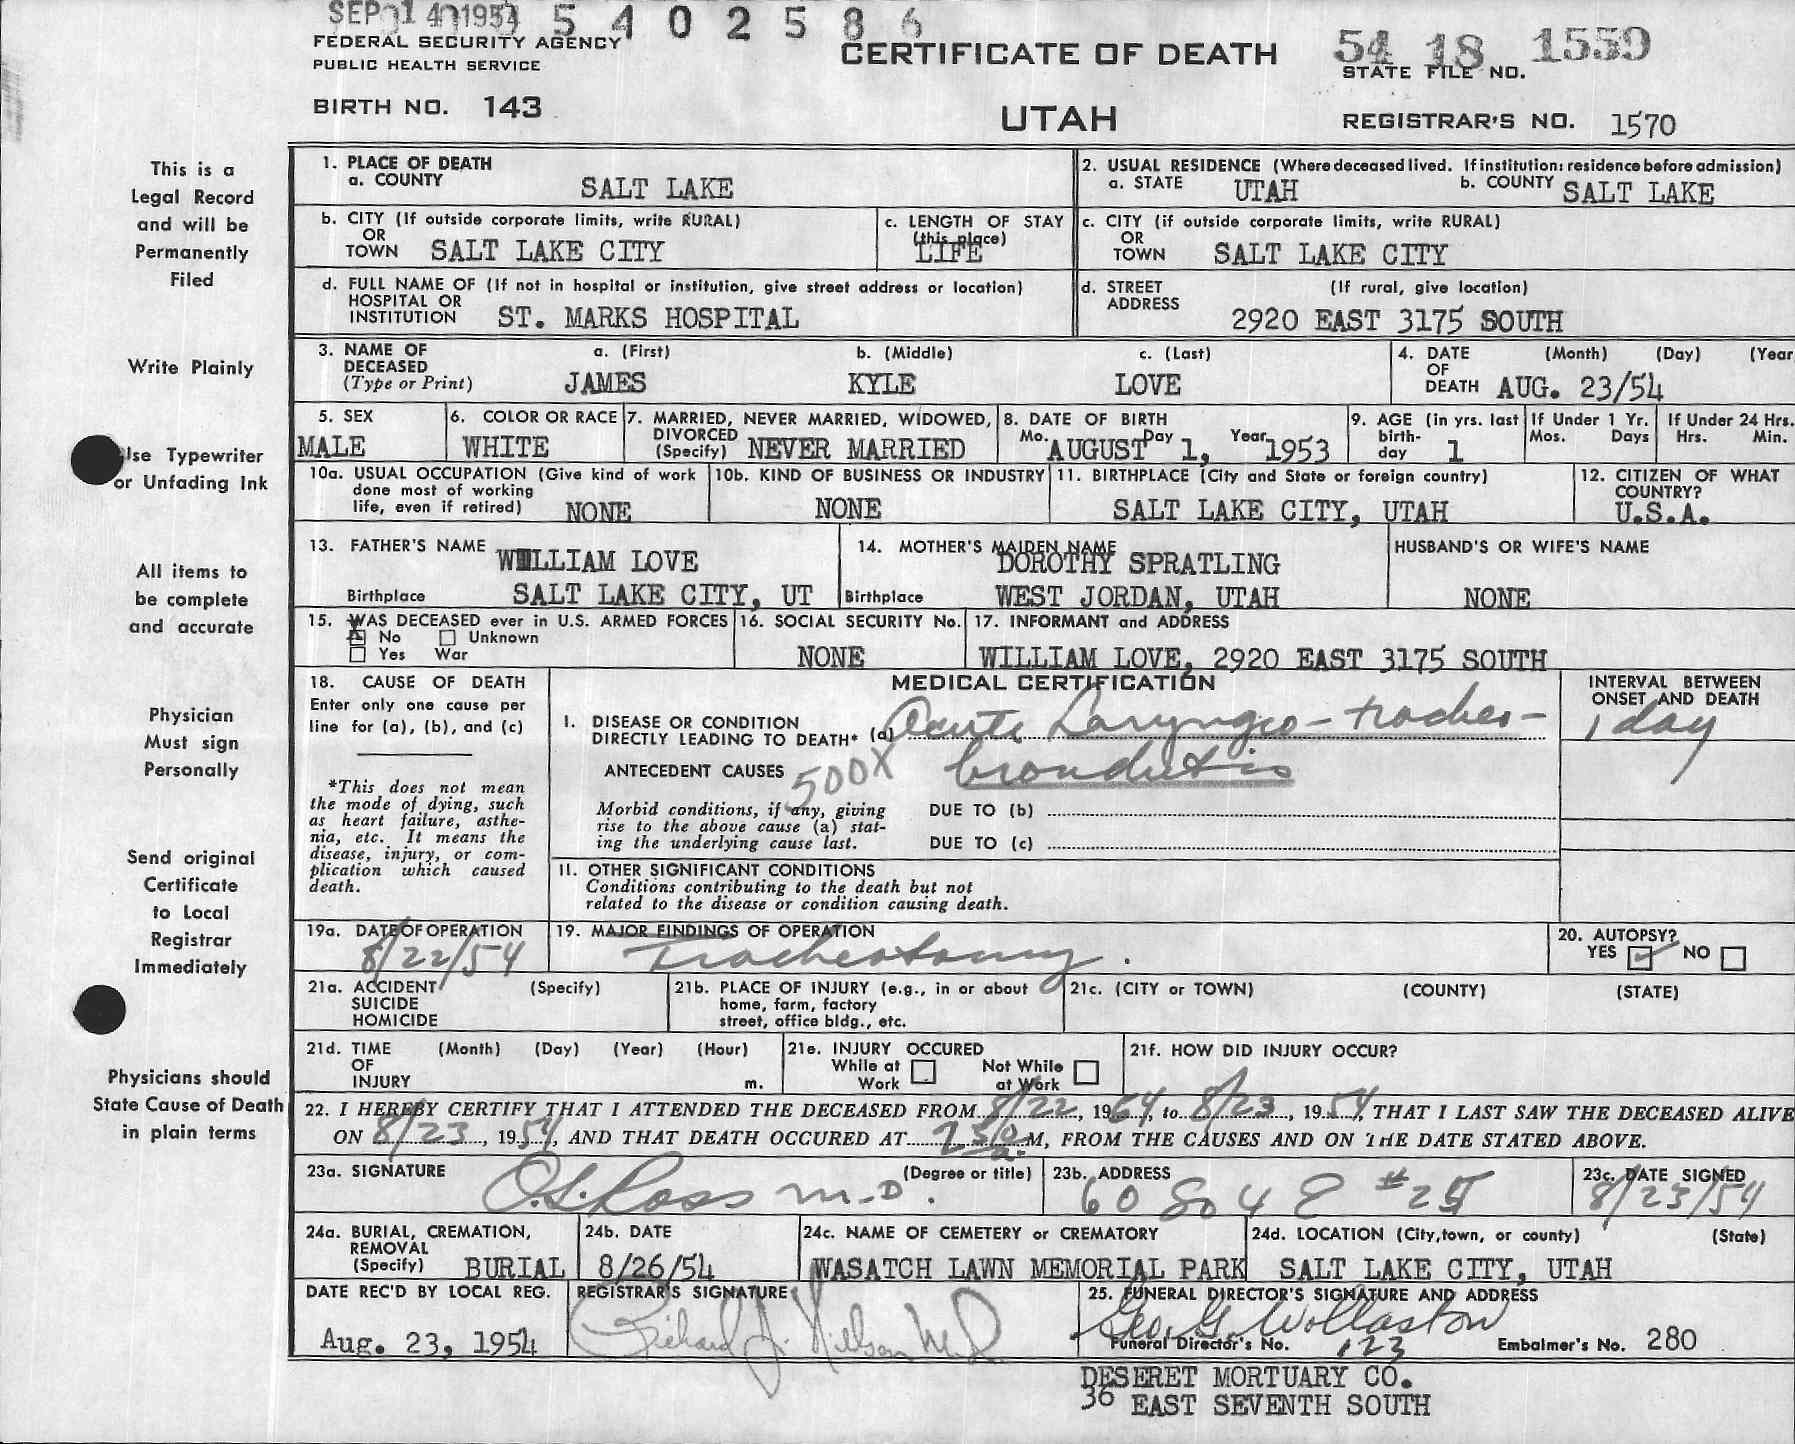 SEP 14 1954 5 4 0 2 5 8 6
FEDERAL SECURITY AGENCY
PUBLIC HEALTH SERVICE
CERTIFICATE OF DEATH
54 18 1559
STATE FILE NO.
BIRTH NO. 143
UTAH
REGISTRAR'S NO. 1570
This is a
Legal Record
and will be
Permanently
Filed
Write Plainly
Use Typewriter
or Unfading Ink
All items to
be complete
and accurate
Physician
Must sign
Personally
Send original
Certificate
to Local
Registrar
Immediately
Physicians should
State Cause of Death
in plain terms
1. PLACE OF DEATH
a. COUNTY SALT LAKE
2. USUAL RESIDENCE (Where deceased lived. If institution: residence before admission)
a. STATE UTAH b. COUNTY SALT LAKE
b. CITY (If outside corporate limits, write RURAL)
OR
TOWN SALT LAKE CITY
c. LENGTH OF STAY
(this place)
LIFE
c. CITY (if outside corporate limits, write RURAL)
OR
TOWN SALT LAKE CITY
d. FULL NAME OF (If not in hospital or institution, give street address or location)
HOSPITAL OR
INSTITUTION ST. MARKS HOSPITAL
d. STREET (If rural, give location)
ADDRESS
2920 EAST 3175 SOUTH
3. NAME OF a. (First) b. (Middle) c. (Last)
DECEASED
(Type or Print) JAMES KYLE LOVE
4. DATE (Month) (Day) (Year
OF
DEATH AUG. 23/54
5. SEX
MALE
6. COLOR OR RACE
WHITE
7. MARRIED, NEVER MARRIED, WIDOWED,
DIVORCED
(Specify) NEVER MARRIED
8. DATE OF BIRTH
Mo. AUGUST Day 1, Year 1953
9. AGE (in yrs. last
birth-
day 1
If Under 1 Yr.
Mos. Days
If Under 24 Hrs.
Hrs. Min.
10a. USUAL OCCUPATION (Give kind of work
done most of working
life, even if retired) NONE
10b. KIND OF BUSINESS OR INDUSTRY
NONE
11. BIRTHPLACE (City and State or foreign country)
SALT LAKE CITY, UTAH
12. CITIZEN OF WHAT
COUNTRY?
U.S.A.
13. FATHER'S NAME WILLIAM LOVE
Birthplace SALT LAKE CITY, UT
14. MOTHER'S MAIDEN NAME
DOROTHY SPRATLING
Birthplace WEST JORDAN, UTAH
HUSBAND'S OR WIFE'S NAME
NONE
15. WAS DECEASED ever in U.S. ARMED FORCES
X No Unknown
Yes War
16. SOCIAL SECURITY No.
NONE
17. INFORMANT and ADDRESS
WILLIAM LOVE, 2920 EAST 3175 SOUTH
18. CAUSE OF DEATH
Enter only one cause per
line for (a), (b), and (c)
*This does not mean
the mode of dying, such
as heart failure, asthe-
nia, etc. It means the
disease, injury, or com-
plication which caused
death.
MEDICAL CERTIFICATION
INTERVAL BETWEEN
ONSET AND DEATH
I. DISEASE OR CONDITION
DIRECTLY LEADING TO DEATH* (a) Acute Laryngeo-tracheo-
1 day
ANTECEDENT CAUSES 500X bronchitis
Morbid conditions, if any, giving DUE TO (b)
rise to the above cause (a) stat-
ing the underlying cause last. DUE TO (c)
II. OTHER SIGNIFICANT CONDITIONS
Conditions contributing to the death but not
related to the disease or condition causing death.
19a. DATE OF OPERATION
8/22/54
19. MAJOR FINDINGS OF OPERATION
Tracheotomy.
20. AUTOPSY?
YES ✓ NO
21a. ACCIDENT (Specify)
SUICIDE
HOMICIDE
21b. PLACE OF INJURY (e.g., in or about
home, farm, factory
street, office bldg., etc.
21c. (CITY or TOWN) (COUNTY) (STATE)
21d. TIME (Month) (Day) (Year) (Hour)
OF
INJURY m.
21e. INJURY OCCURED
While at Not While
Work at Work
21f. HOW DID INJURY OCCUR?
22. I HEREBY CERTIFY THAT I ATTENDED THE DECEASED FROM 8/22, 1964, to 8/23, 1954, THAT I LAST SAW THE DECEASED ALIVE
ON 8/23, 1954, AND THAT DEATH OCCURED AT 7 30 a. M, FROM THE CAUSES AND ON THE DATE STATED ABOVE.
23a. SIGNATURE (Degree or title)
O.L. Ross M.D.
23b. ADDRESS
60 So 4 E #25
23c. DATE SIGNED
8/23/54
24a. BURIAL, CREMATION,
REMOVAL
(Specify) BURIAL
24b. DATE
8/26/54
24c. NAME OF CEMETERY or CREMATORY
WASATCH LAWN MEMORIAL PARK
24d. LOCATION (City, town, or county) (State)
SALT LAKE CITY, UTAH
DATE REC'D BY LOCAL REG.
Aug. 23, 1954
REGISTRAR'S SIGNATURE
Richard J. Nielson M.D.
25. FUNERAL DIRECTOR'S SIGNATURE AND ADDRESS
Geo. G. Wollaston
Funeral Director's No. 123 Embalmer's No. 280
DESERET MORTUARY CO.
36 EAST SEVENTH SOUTH